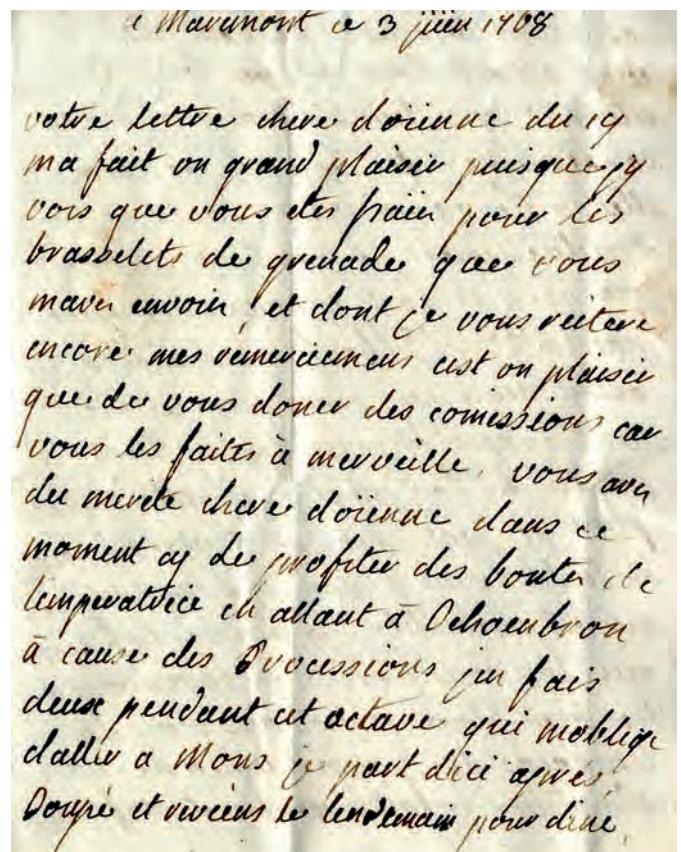 a Marimont ce 3 juin 1768
votre lettre chere doïenne du 19
ma fait un grand plaisir puisque jy
vois que vous etes païée pour les
brasselets de grenade que vous
mavez envoié, et dont je vous reitere
encore mes remerciemens cest un plaisir
que de vous doner des comissions car
vous les faites à merveille, vous avez
du merite chere doïenne dans ce
moment cy de profiter des bontes de
limperatrice en allant à Schoenbron
à cause des Processions jen fais
deux pendant cet octave qui moblige
daller a Mons je part dici apres
Soupé et reviens le lendemain pour diné